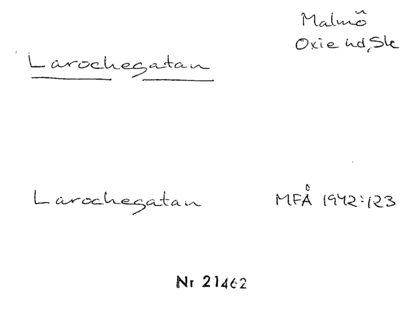 Malmö
Oxie hd, Sk
Larochegatan
Larochegatan MFÅ 1942:123
Nr 21462